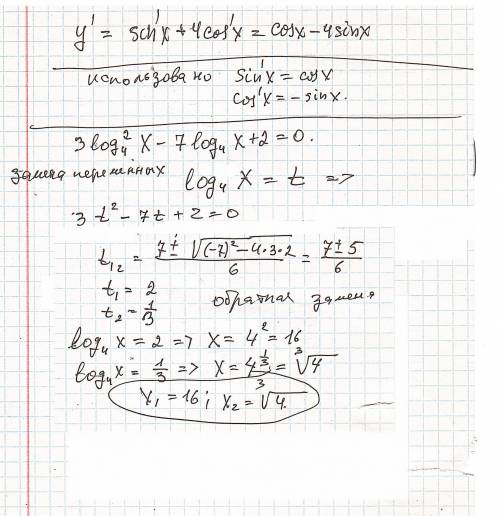 y' = sin'x + 4cos'x = cosx - 4sinx
использовано sin'x = cosx
cos'x = -sinx.
3log₄²x - 7log₄x + 2 = 0.
замена переменных log₄x = t =>
3t² - 7t + 2 = 0
t₁₂ = (7 ± √((-7)² - 4·3·2))/6 = (7 ± 5)/6
t₁ = 2
t₂ = 1/3 обратная замена
log₄x = 2 => x = 4² = 16
log₄x = 1/3 => x = 4^(1/3) = ³√4
x₁ = 16; x₂ = ³√4.